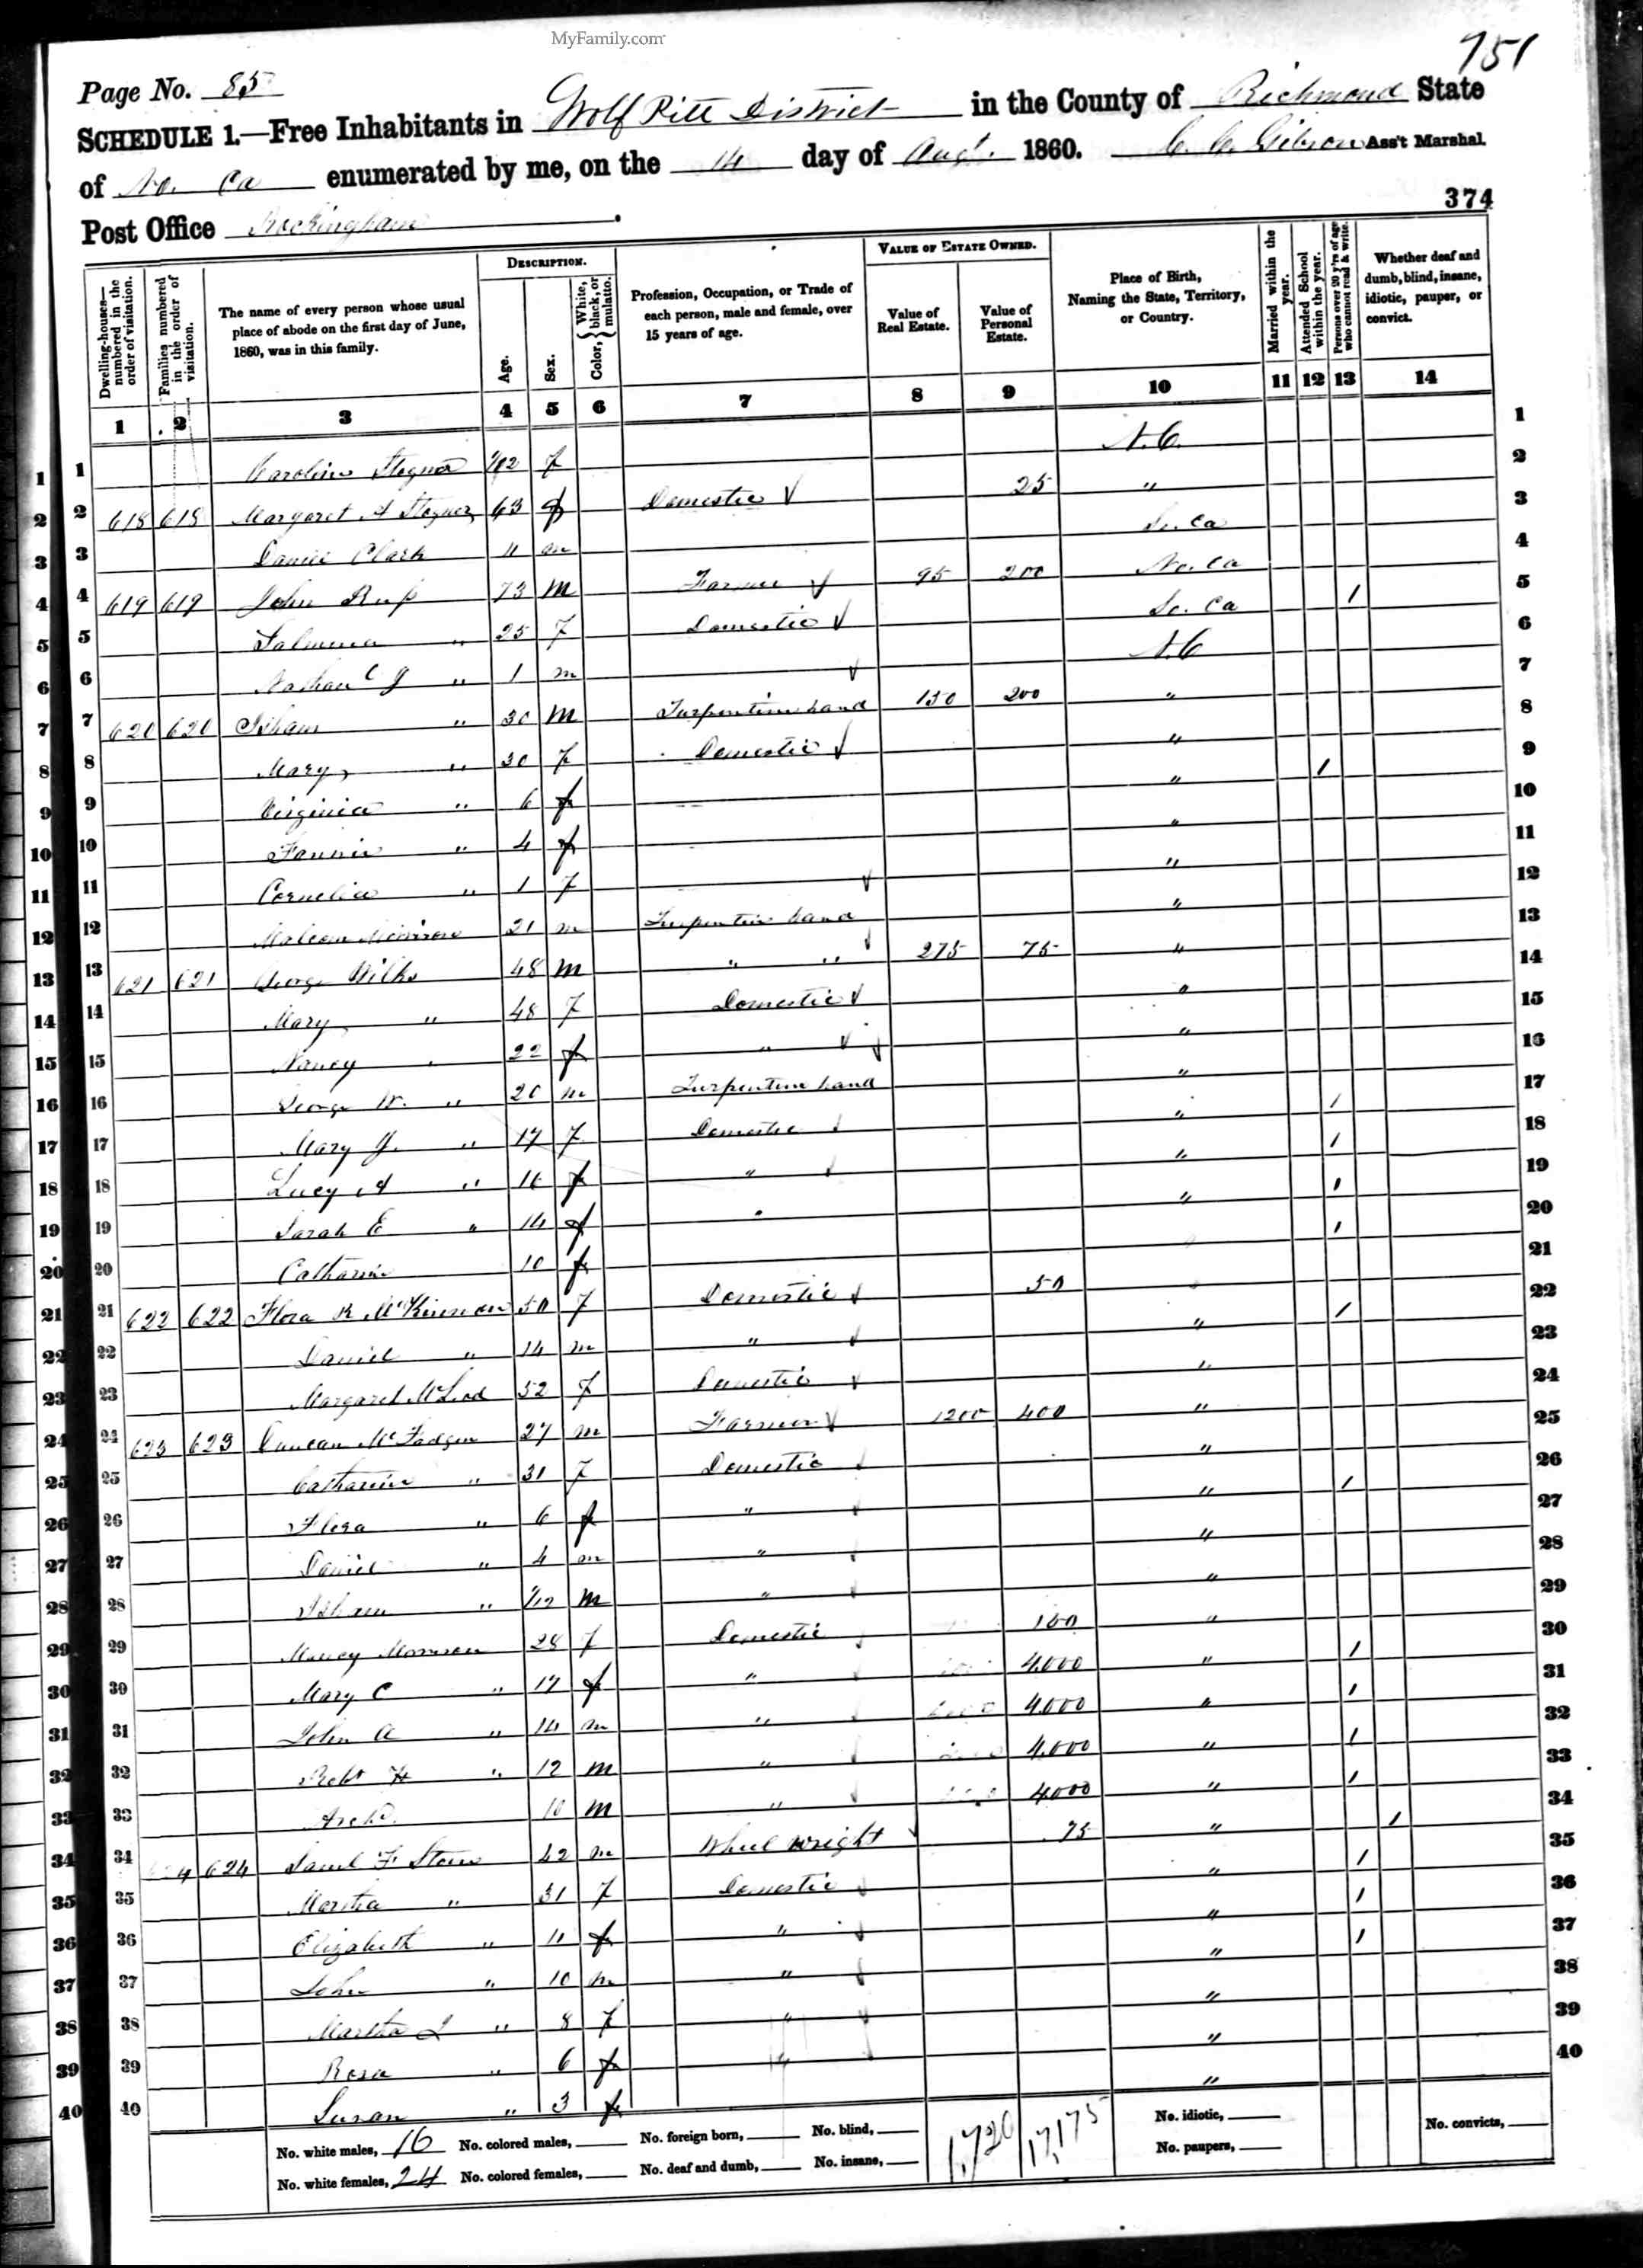 MyFamily.com
751
Page No. 85
SCHEDULE 1.—Free Inhabitants in Wolf Pitt District in the County of Richmond State
of No. Ca enumerated by me, on the 14 day of Aug. 1860. C. C. Gibson Ass't Marshal.
374
Post Office Rockingham
Dwelling-houses—numbered in the order of visitation.
Families numbered in the order of visitation.
The name of every person whose usual place of abode on the first day of June, 1860, was in this family.
DESCRIPTION.
Age.
Sex.
Color, { White, black, or mulatto.
Profession, Occupation, or Trade of each person, male and female, over 15 years of age.
VALUE OF ESTATE OWNED.
Value of Real Estate.
Value of Personal Estate.
Place of Birth, Naming the State, Territory, or Country.
Married within the year.
Attended School within the year.
Persons over 20 y'rs of age who cannot read & write.
Whether deaf and dumb, blind, insane, idiotic, pauper, or convict.
1 2 3 4 5 6 7 8 9 10 11 12 13 14
1 Caroline f N.C.
2 618 618 Margaret A 63 f Domestic 25 "
3 Daniel Clark 11 m So. Ca
4 619 619 John 73 m Farmer 95 200 No. Ca
5 " 25 f Domestic So. Ca 1
6 Nathan " 1 m N.C
7 620 620 Isham " 30 m Turpentine hand 150 200 "
8 Mary " 30 f Domestic "
9 Virginia " 6 f " 1
10 Fannie " 4 f "
11 Cornelia " 1 f "
12 Malcom 21 m Turpentine hand "
13 621 621 George Wilks 48 m " " 275 75 "
14 Mary " 48 f Domestic "
15 Nancy " 22 f " "
16 George W. " 20 m Turpentine hand "
17 Mary J. " 17 f Domestic " 1
18 Lucy A " 16 f " " 1
19 Sarah E " 14 f " 1
20 Catharine 10 f 1
21 622 622 Flora McKinnon 50 f Domestic 50 "
22 Daniel " 14 m " " 1
23 Margaret McLeod 52 f Domestic "
24 623 623 Duncan McFadgen 27 m Farmer 1200 400 "
25 Catharine " 31 f Domestic "
26 Flora " 6 f " " 1
27 Daniel " 4 m " "
28 " m " "
29 Nancy Morrison 28 f Domestic 150 "
30 Mary C " 17 f " 4000 " 1
31 John A " 14 m " 4000 " 1
32 Robt H " 12 m " 4000 " 1
33 Archd. 10 m " 4000 " 1
34 624 Saml F 42 m Wheel wright 75 " 1
35 Martha " 31 f Domestic " 1
36 Elizabeth " 11 f " " 1
37 John " 10 m " " 1
38 Martha " 8 f " "
39 Rosa " 6 f "
40 Susan " 3 f "
No. white males, 16 No. colored males, No. foreign born, No. blind, No. idiotic, No. convicts,
No. white females, 24 No. colored females, No. deaf and dumb, No. insane, No. paupers,
1,720 17,175